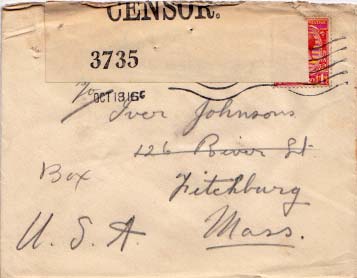 CENSOR.
3735
OCT 13 16
c/o
Iver Johnsons
126 River St
Box
Fitchburg
U.S.A.
Mass.